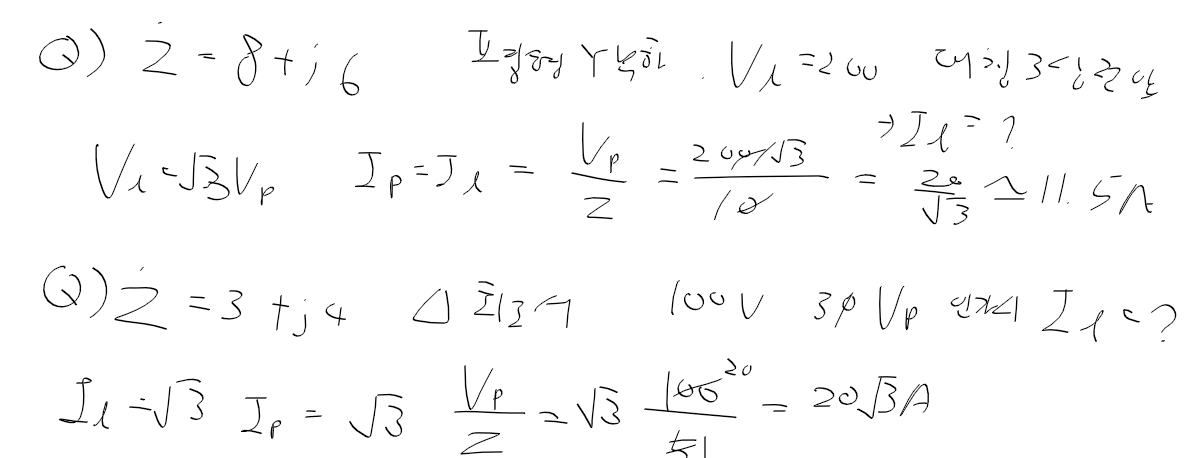 Q) Ż = 8 + j 6 평형 Y부하. V_l = 200 대칭 3상전압
→ I_l = ?
V_l = √3 V_p I_p = I_l = V_p / Z = (200/√3) / 10 = 20/√3 ≃ 11.5A
Q) Ż = 3 + j4 △ 회로서 100V 3φ V_p 인가시 I_l = ?
I_l = √3 I_p = √3 V_p / Z = √3 100 20 / 5 1 = 20√3A